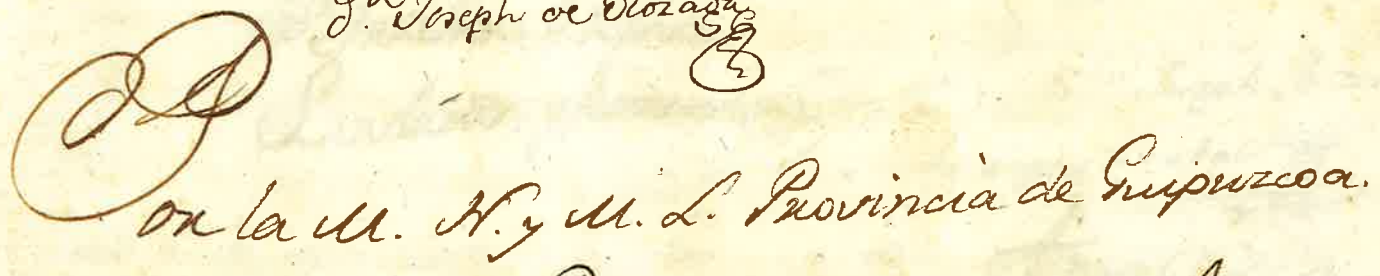 Dn. Joseph de Olozaga
Por la M. N. y M. L. Provincia de Guipuzcoa.